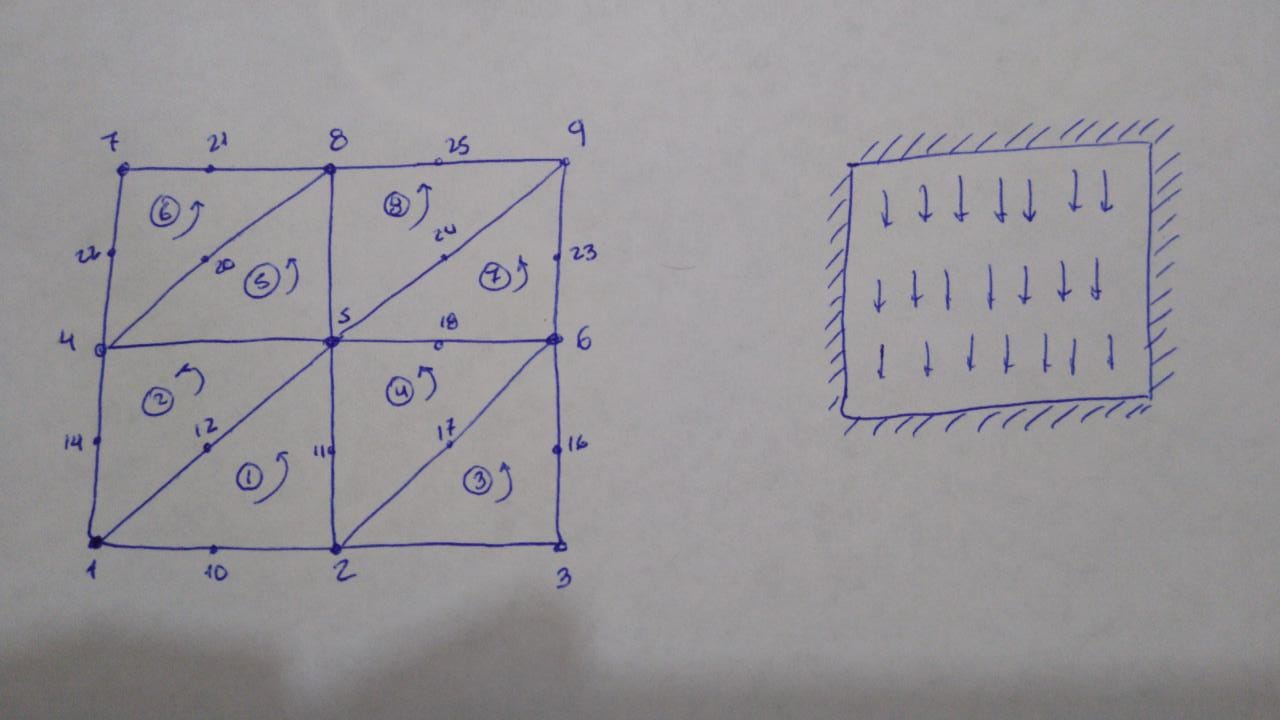 7 21 8 25 9
6 8
22 20 24 23
5 7
4 5 18 6
2 4
14 12 11 17 16
1 3
1 10 2 3